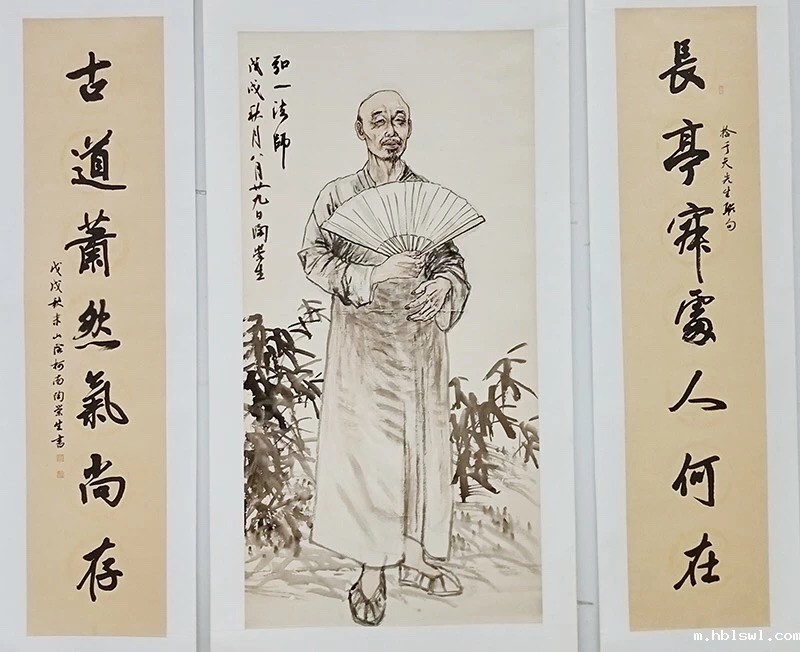 長亭寂處人何在
拾于天先生聯句
弘一法師
戊戌秋月八月廿九日陶崇生
古道蕭然氣尚存
戊戌秋末山陰柯南陶崇生書
m.hblswl.com